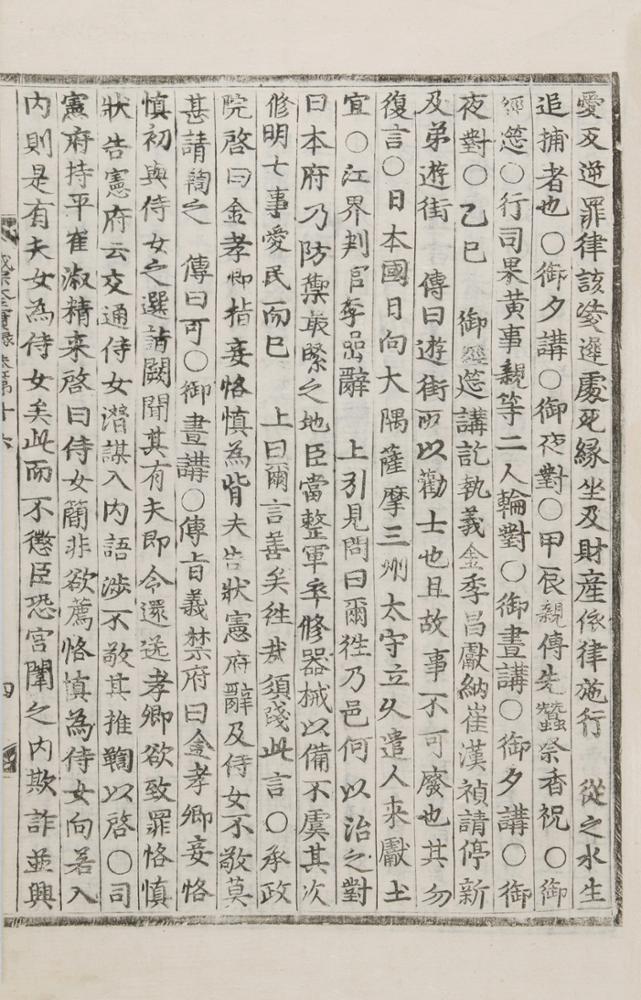 愛歹逆罪律該凌遲處死緣坐及財産依律施行　從之水生
追捕者也○御夕講○御夜對○甲辰親傳先蠶祭香祝○御
經筵○行司果黄事親等二人輪對○御晝講○御夕講○御
夜對○乙巳　御經筵講訖執義金季昌獻納崔漢禎請停新
及弟遊街　傳曰遊街所以勸士也且故事不可廢也其勿
復言○日本國日向大隅薩摩三州太守立久遣人來獻土
宜○江界判官李嵒辭　上引見問曰爾徃乃邑何以治之對
曰本府乃防禦㝡緊之地臣當整軍卒修器械以備不虞其次
修明七事愛民而已　上曰爾言善矣徃哉須踐此言○承政
院啓曰金孝卿指妾恪慎為背夫告狀憲府辭及侍女不敬莫
甚請鞫之　傳曰可○御晝講○傳旨義禁府曰金孝卿妾恪
慎初與侍女之選詣闕聞其有夫即令還送孝卿欲致罪恪慎
狀告憲府云交通侍女潛謀入内語涉不敬其推鞫以啓○司
憲府持平崔淑精来啓曰侍女簡非欲薦恪慎為侍女向若入
内則是有夫女為侍女矣此而不懲臣恐宮闈之内欺詐並興
成宗大王實録卷第十六
四